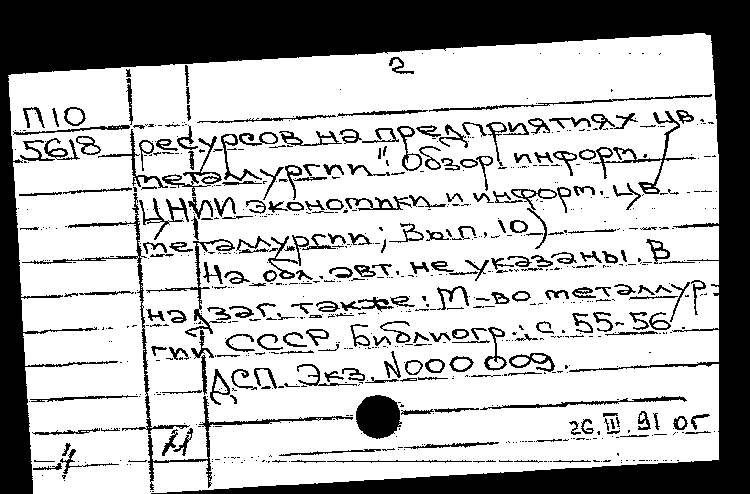 2
П10
5618 ресурсов на предприятиях цв.
металлургии": Обзор. информ.
ЦНИИ экономики и информ. цв.
металлургии; Вып. 10)
На обл. авт. не указаны. В
надзаг. также: М-во металлур-
гии СССР. Библиогр.: с. 55-56
ДСП. Экз. N000 009.
26.III.91 ог
4 М